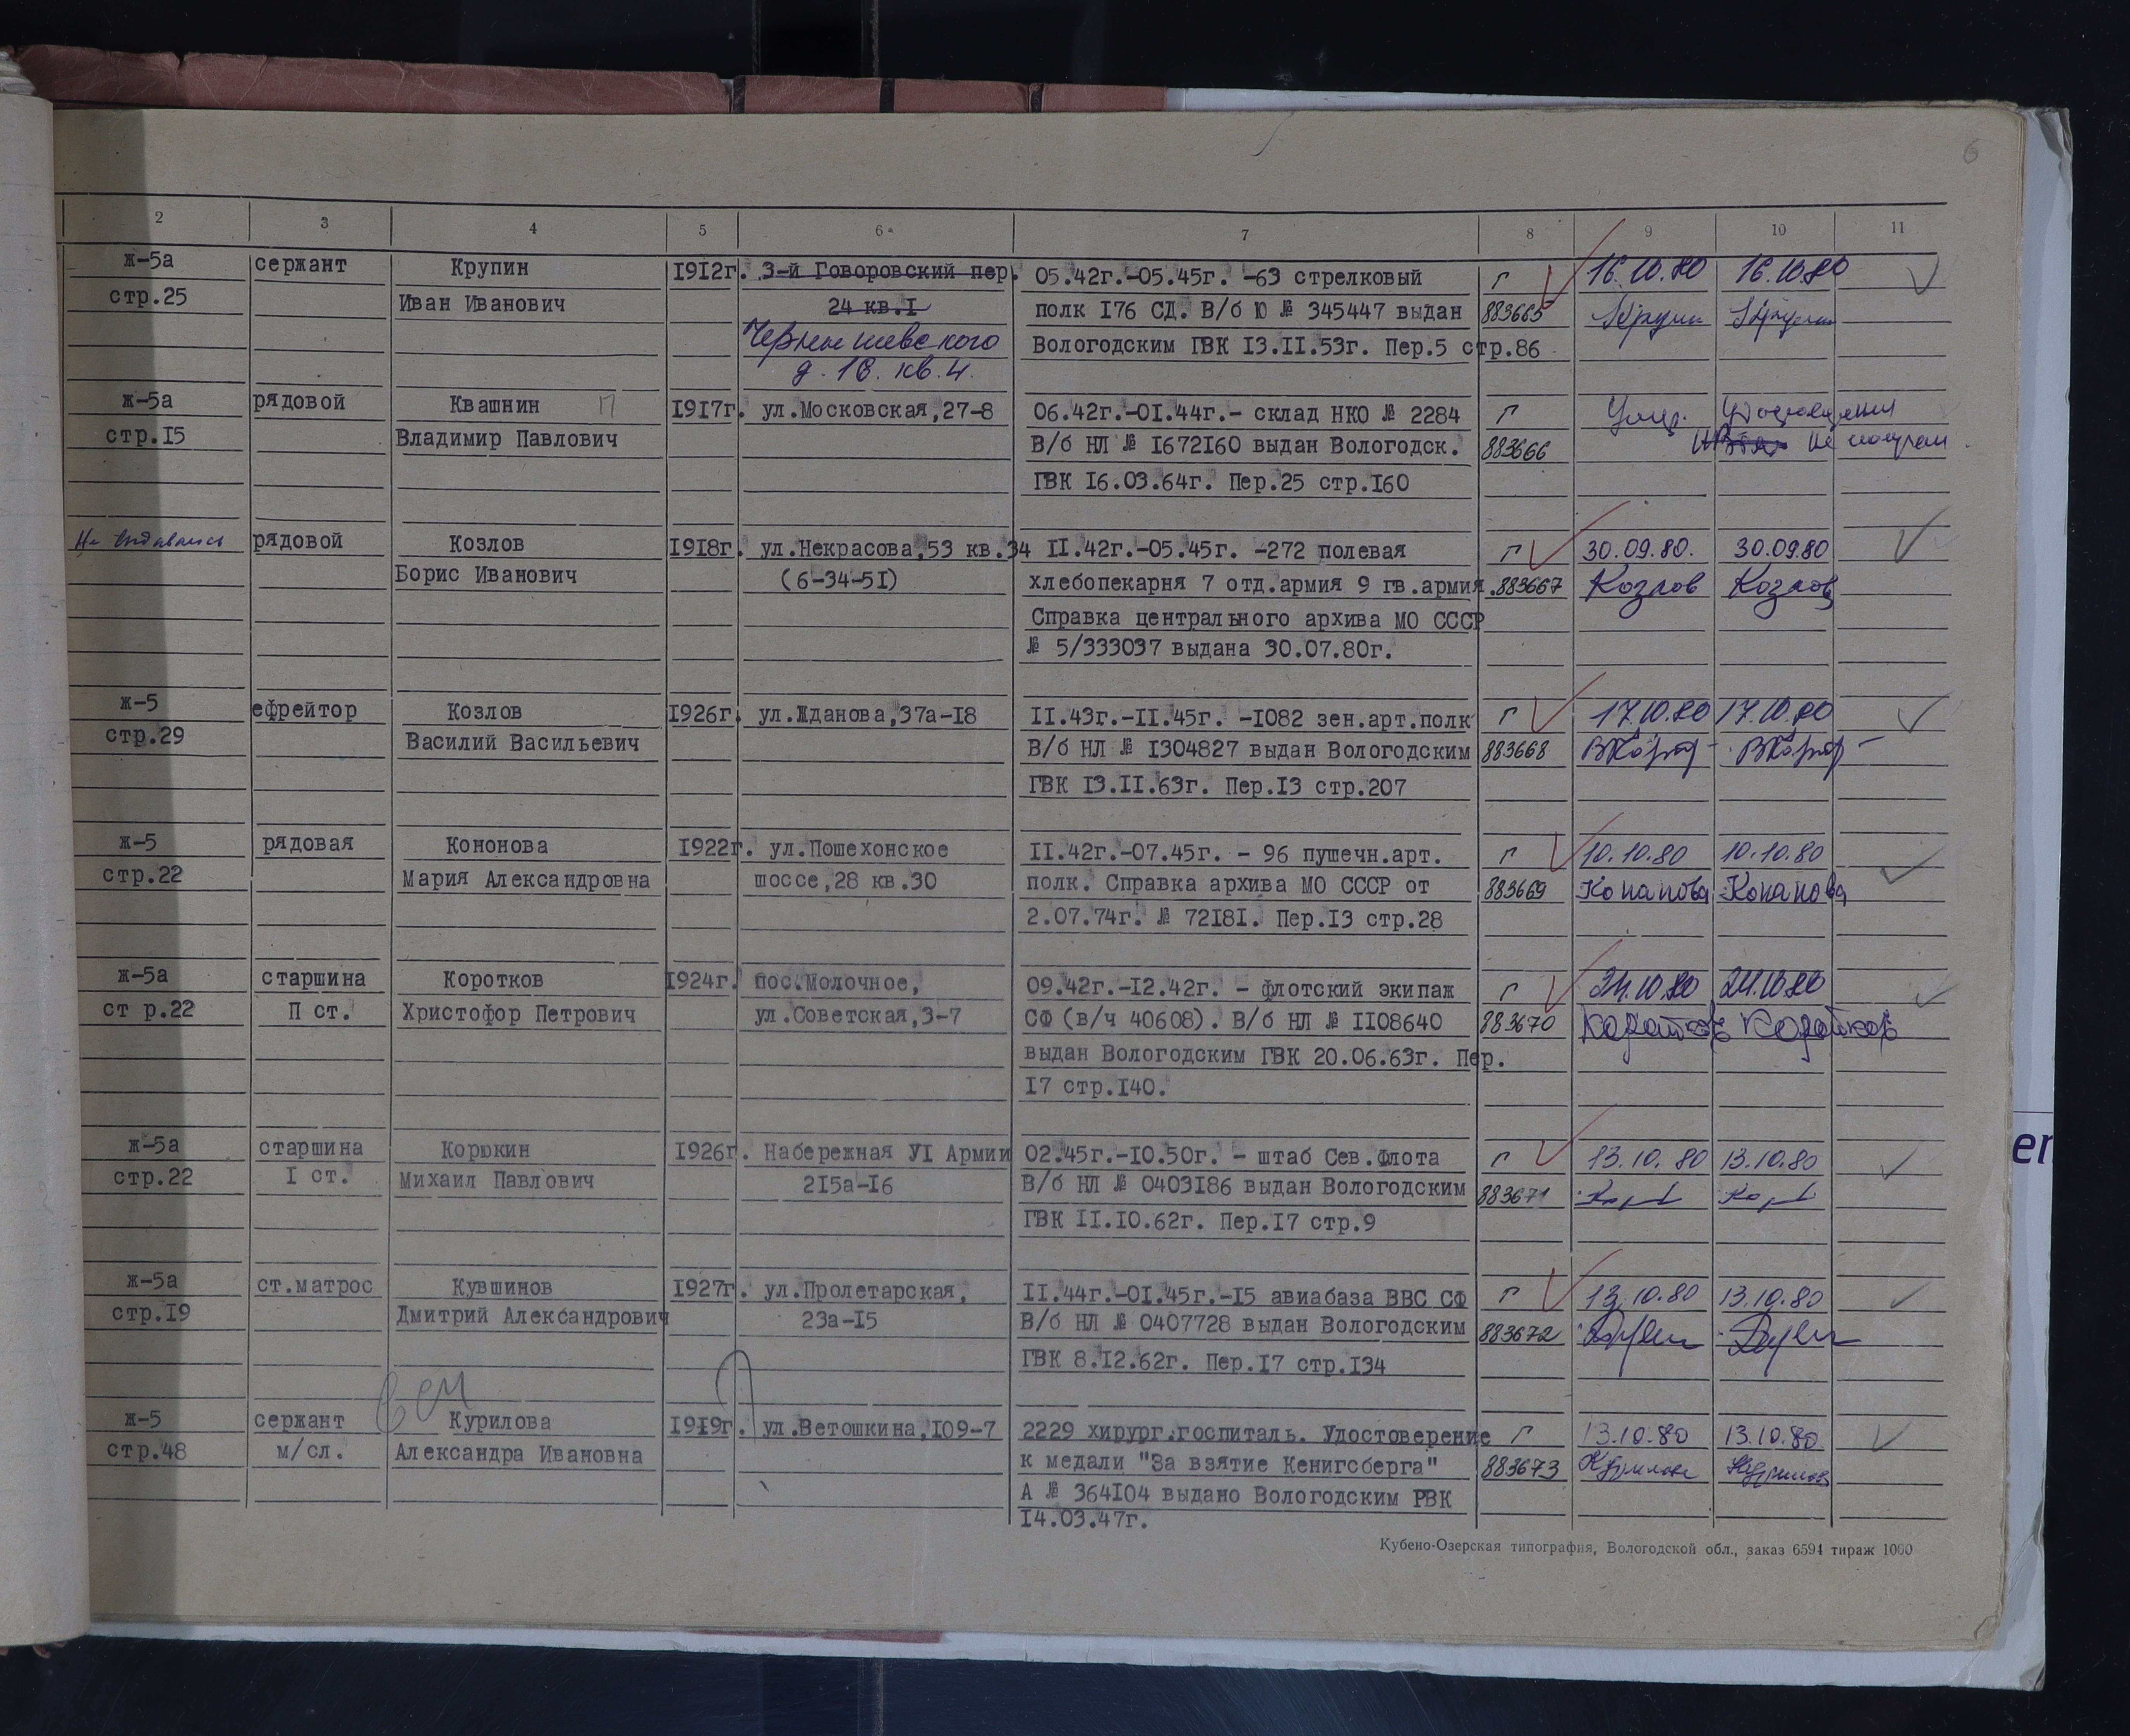 6
2 3 4 5 6 7 8 9 10 11
ж-5а сержант Крупин 1912г. 3-й Говоровский пер. 05.42г.-05.45г. -63 стрелковый г 16.10.80 16.10.80
стр.25 Иван Иванович 24 кв.I полк I76 СД. В/б Ю № 345447 выдан 883665
Чернышевского Вологодским ГВК I3.II.53г. Пер.5 стр.86
д. 18. кв.4.
ж-5а рядовой Квашнин П 1917г. ул.Московская,27-8 06.42г.-0I.44г.- склад НКО № 2284 г Умер. Удостоверения
стр.I5 Владимир Павлович В/б НЛ № I672I60 выдан Вологодск. 883666 не получал
ГВК I6.03.64г. Пер.25 стр.I60
Не выдавались рядовой Козлов 1918г. ул.Некрасова,53 кв.34 II.42г.-05.45г. -272 полевая г 30.09.80. 30.09.80
Борис Иванович (6-34-5I) хлебопекарня 7 отд.армия 9 гв.армия. 883667 Козлов Козлов
Справка центрального архива МО СССР
№ 5/333037 выдана 30.07.80г.
ж-5 ефрейтор Козлов 1926г. ул.Жданова,37а-I8 II.43г.-II.45г. -I082 зен.арт.полк г 17.10.80 17.10.80
стр.29 Василий Васильевич В/б НЛ № I304827 выдан Вологодским 883668
ГВК I3.II.63г. Пер.I3 стр.207
ж-5 рядовая Кононова 1922г. ул.Пошехонское II.42г.-07.45г. - 96 пушечн.арт. г 10.10.80 10.10.80
стр.22 Мария Александровна шоссе,28 кв.30 полк. Справка архива МО СССР от 883669 Конанова Конанова
2.07.74г. № 72I8I. Пер.I3 стр.28
ж-5а старшина Коротков 1924г. пос.Молочное, 09.42г.-I2.42г. - флотский экипаж г 24.10.80 24.10.80
ст р.22 П ст. Христофор Петрович ул.Советская,3-7 СФ (в/ч 40608). В/б НЛ № II08640 883670 Коротков Коротков
выдан Вологодским ГВК 20.06.63г. Пер.
I7 стр.I40.
ж-5а старшина Корюкин 1926г. Набережная УI Армии 02.45г.-I0.50г. - штаб Сев.Флота г 13.10.80 13.10.80
стр.22 I ст. Михаил Павлович 2I5а-I6 В/б НЛ № 0403I86 выдан Вологодским 883671
ГВК II.I0.62г. Пер.I7 стр.9
ж-5а ст.матрос Кувшинов 1927г. ул.Пролетарская, II.44г.-0I.45г.-I5 авиабаза ВВС СФ г 13.10.80 13.10.80
стр.I9 Дмитрий Александрович 23а-I5 В/б НЛ № 0407728 выдан Вологодским 883672
ГВК 8.I2.62г. Пер.I7 стр.I34
ж-5 сержант Курилова 1919г. ул.Ветошкина,I09-7 2229 хирург.госпиталь. Удостоверение г 13.10.80 13.10.80
стр.48 м/сл. Александра Ивановна к медали "За взятие Кенигсберга" 883673 Курилова Курилова
А № 364I04 выдано Вологодским РВК
I4.03.47г.
Кубено-Озерская типография, Вологодской обл., заказ 6594 тираж 1000